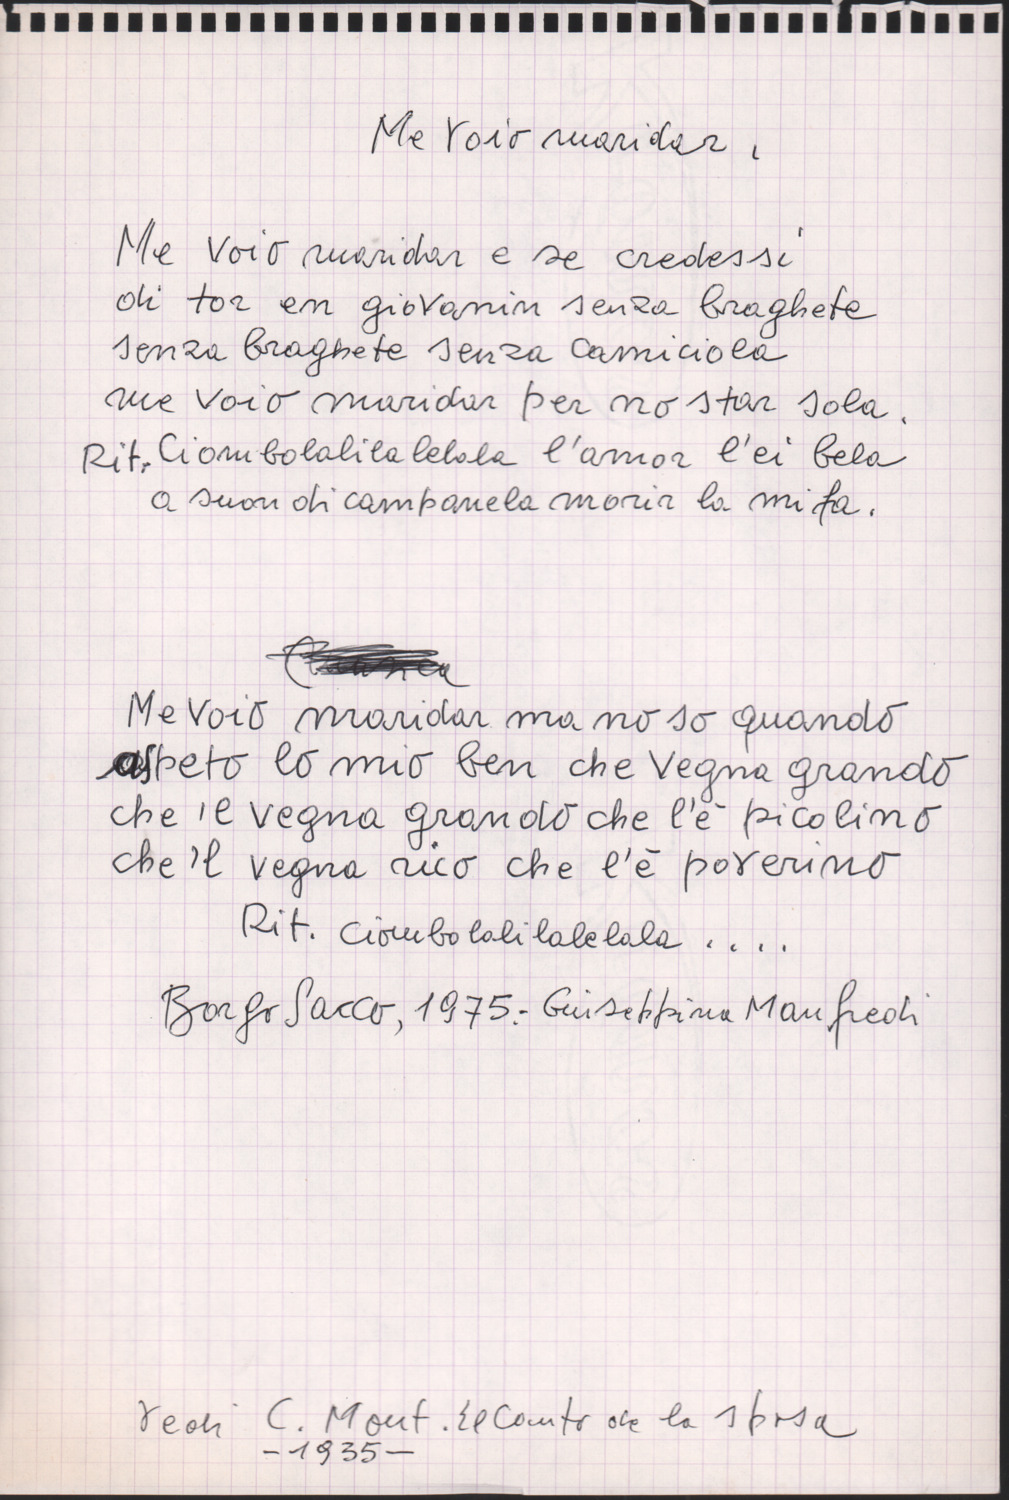 Me voio maridar.
Me voio maridar e se credessi
di tor en giovanin senza braghete
senza braghete senza camiciola
me voio maridar per no star sola.
Rit. Ciombolalilalelala l'amor l'ei bela
a suon di campanela morir la mi fa.
Me voio maridar ma no so quando
aspeto lo mio ben che vegna grando
che 'l vegna grando che l'è picolino
che 'l vegna rico che l'è poverino
Rit. Ciombolalilalelala ....
Borgo Sacco, 1975.- Giuseppina Manfredi
vedi C. Mont. El Canto de la sposa
-1935-